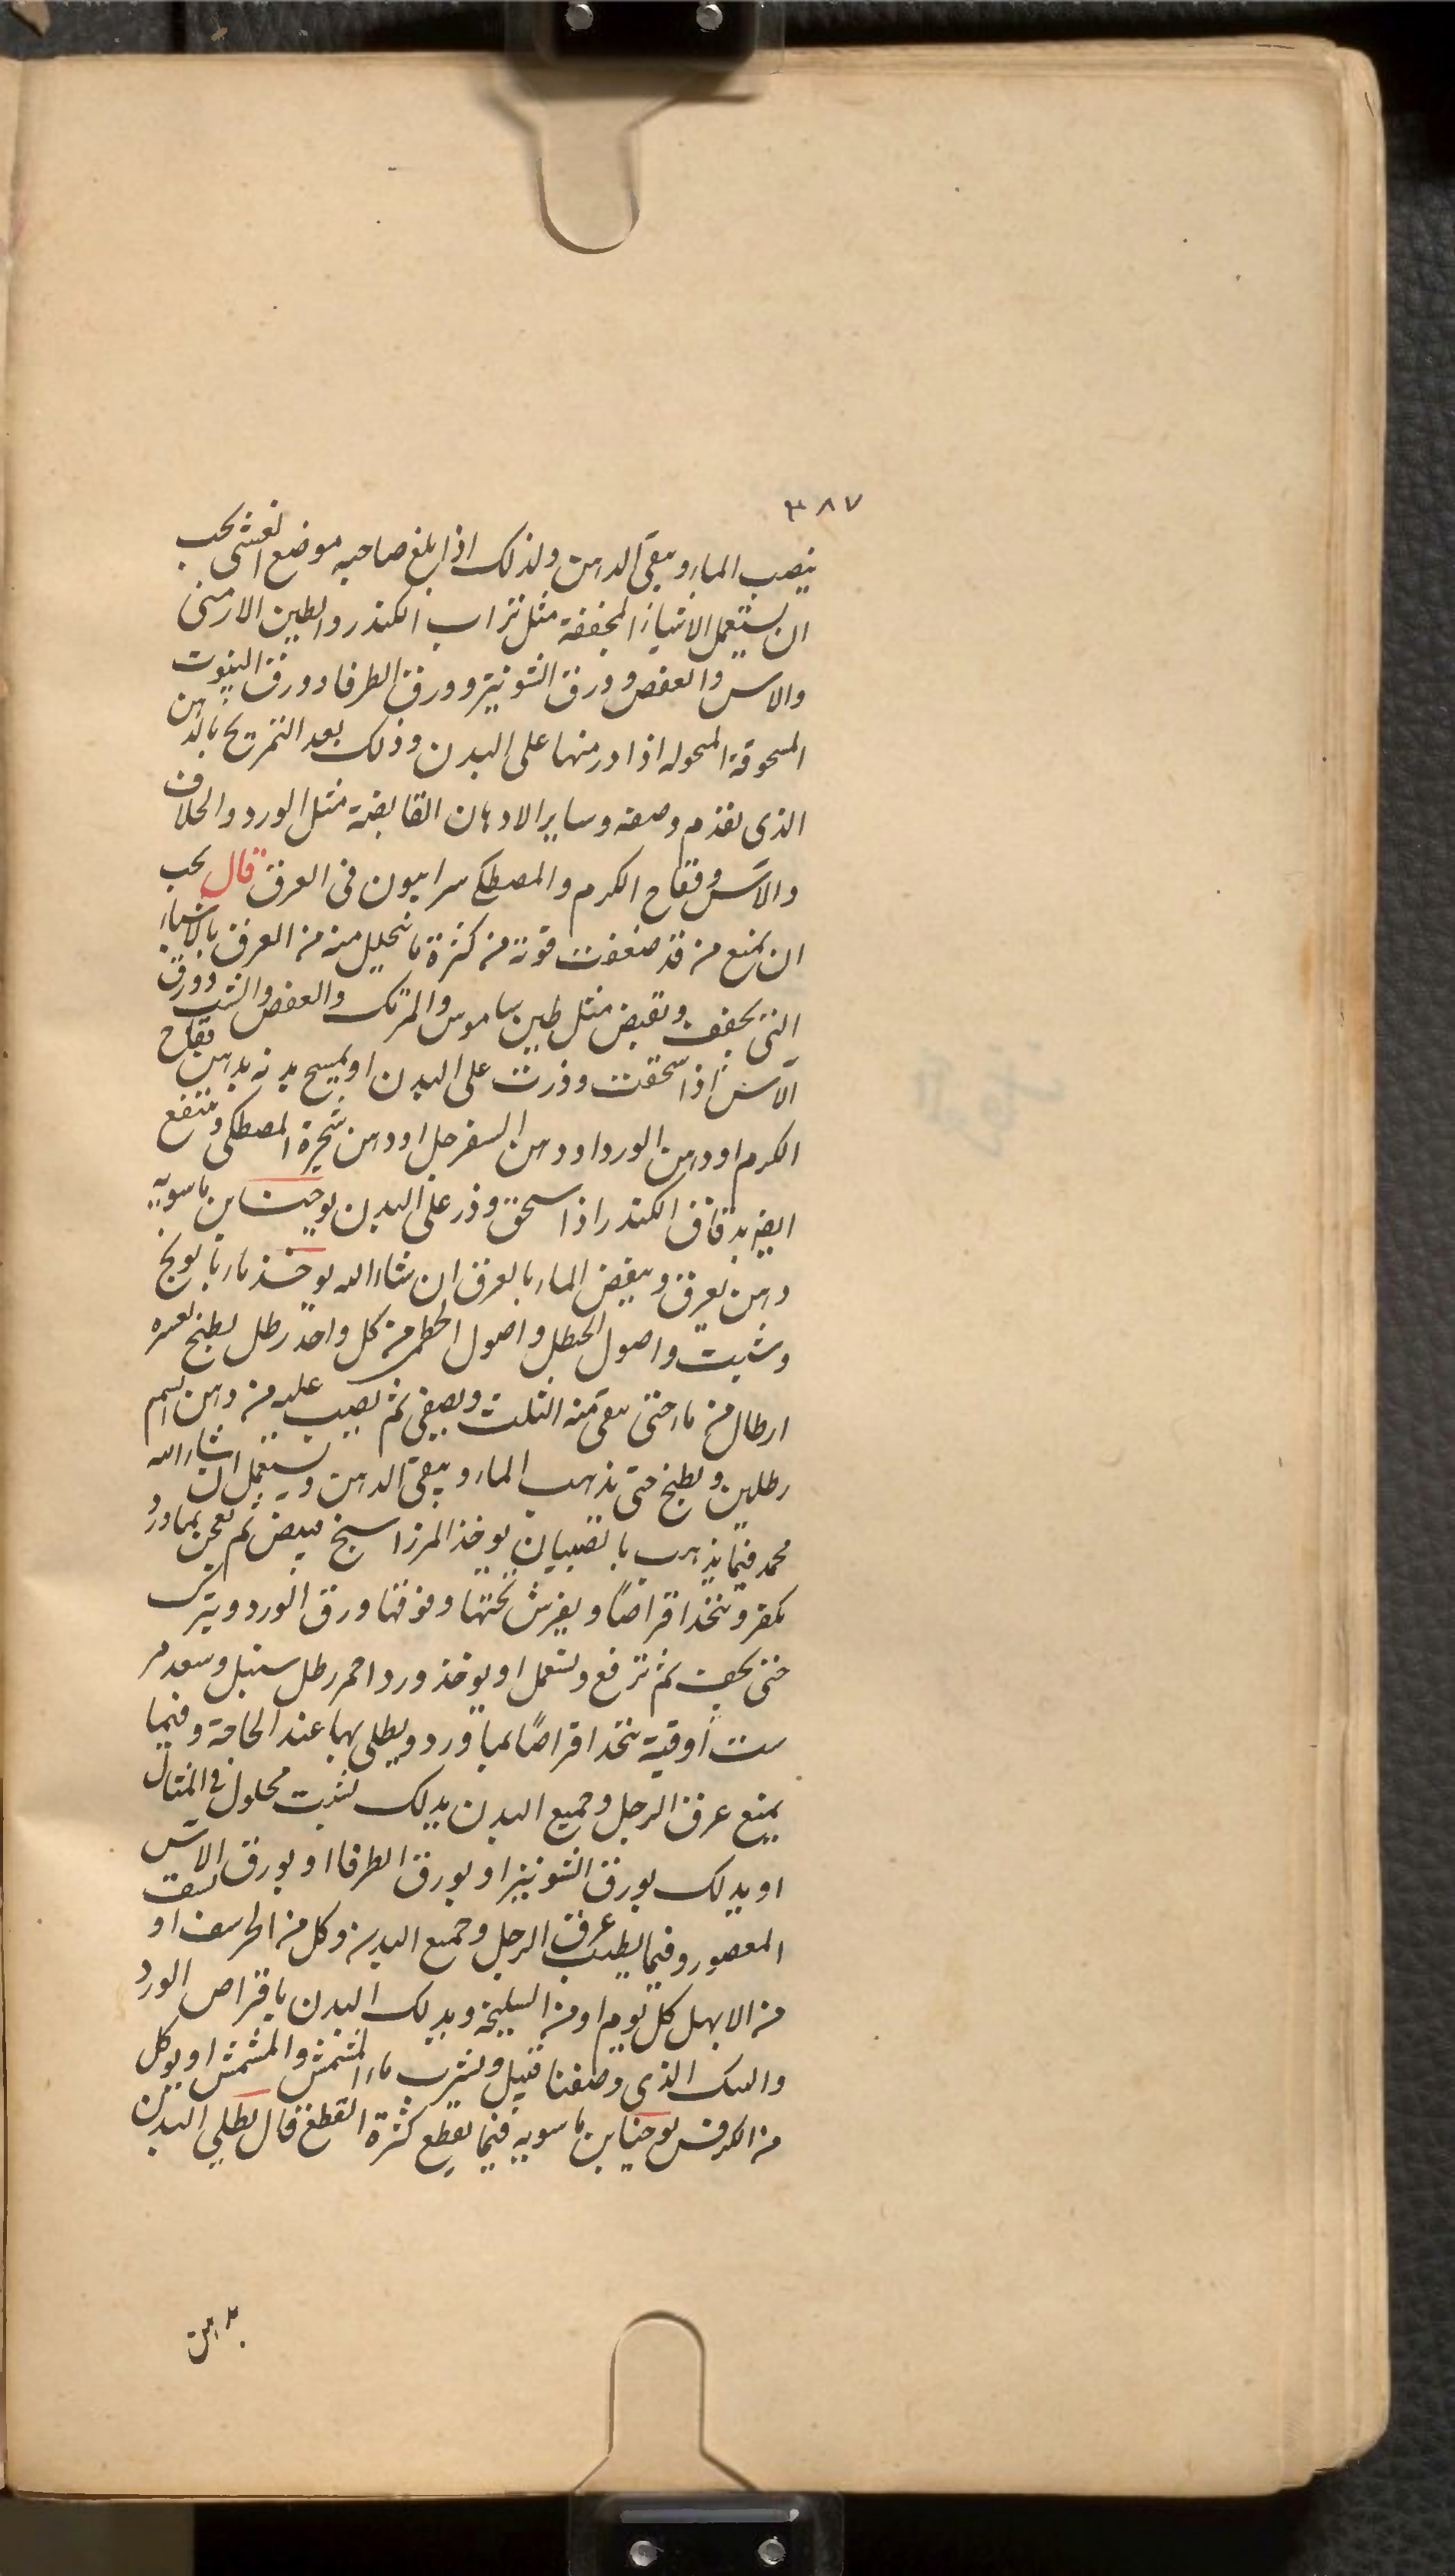 ٣٨٧
ينصب الماء ويبقى الدهن ولذلك اذا بلغ صاحبه موضع الغشى يجب
ان يستعمل الاشياء المجففة مثل تراب الكندر والطين الارمنى
والاس والعفص وورق الشونيز وورق الطرفا وورق الينبوت
المسحوقة المنخوله اذا ذر منها على البدن وذلك بعد التمريخ بالدهن
الذى تقدم وصفه وساير الادهان القابضة مثل الورد والخلاف
والآس وفقاح الكرم والمصطكى سرابيون فى العرق قال يجب
ان يمنع من قد ضعفت قوته من كثرة ما يتحلل منه من العرق بالاشياء
التى تجفف وتقبض مثل طين ساموس والمرتك والعفص والشب وورق
الآس اذا سحقت وذرت على البدن او يمسح بدنه بدهن فقاح
الكرم او دهن الورد او دهن السفرجل او دهن شجرة المصطكى وينتفع
ايضا بدقاق الكندر اذا سحق وذر على البدن يوحنا بن ماسويه
دهن يعرق ويفيض الماء بالعرق ان شاء الله يوخذ ماء بابونج
وشبت واصول الحنظل واصول الخطمى من كل واحد رطل يطبخ بعشره
ارطال من ماء حتى يبقى منه الثلث ويصفى ثم يصب عليه من دهن
رطلين ويطبخ حتى يذهب الماء ويبقى الدهن ويستعمل ان شاء الله
محمد فيما يذهب بالصبيان يوخذ المرداسنج مبيض ثم يعجن بماورد
بكفر وتتخذ اقراصًا ويفرش تحتها وفوقها ورق الورد ويترك
حتى يجف ثم ترفع ويستعمل او يوخذ ورد احمر رطل سنبل وسعد مر
ست اوقية يتخذ اقراصًا بماورد ويطلى بها عند الحاجة وفيما
يمنع عرق الرجل وجميع البدن يدلك بشبت محلول فى المثال
او يدلك بورق الشونيز او بورق الطرفا او بورق الآس
المعصور وفيما يطيب عرق الرجل وجميع البدن وكل من الحرشف او
من الابهل كل يوم او من السليخة ويدلك البدن باقراص الورد
والسك الذى وصفنا قبيل ويشرب ماء المشمش والمشمش او يوكل
من الكرفس يوحنا بن ماسويه فيما يقطع كثرة القطع قال يطلى البدن
بدهن